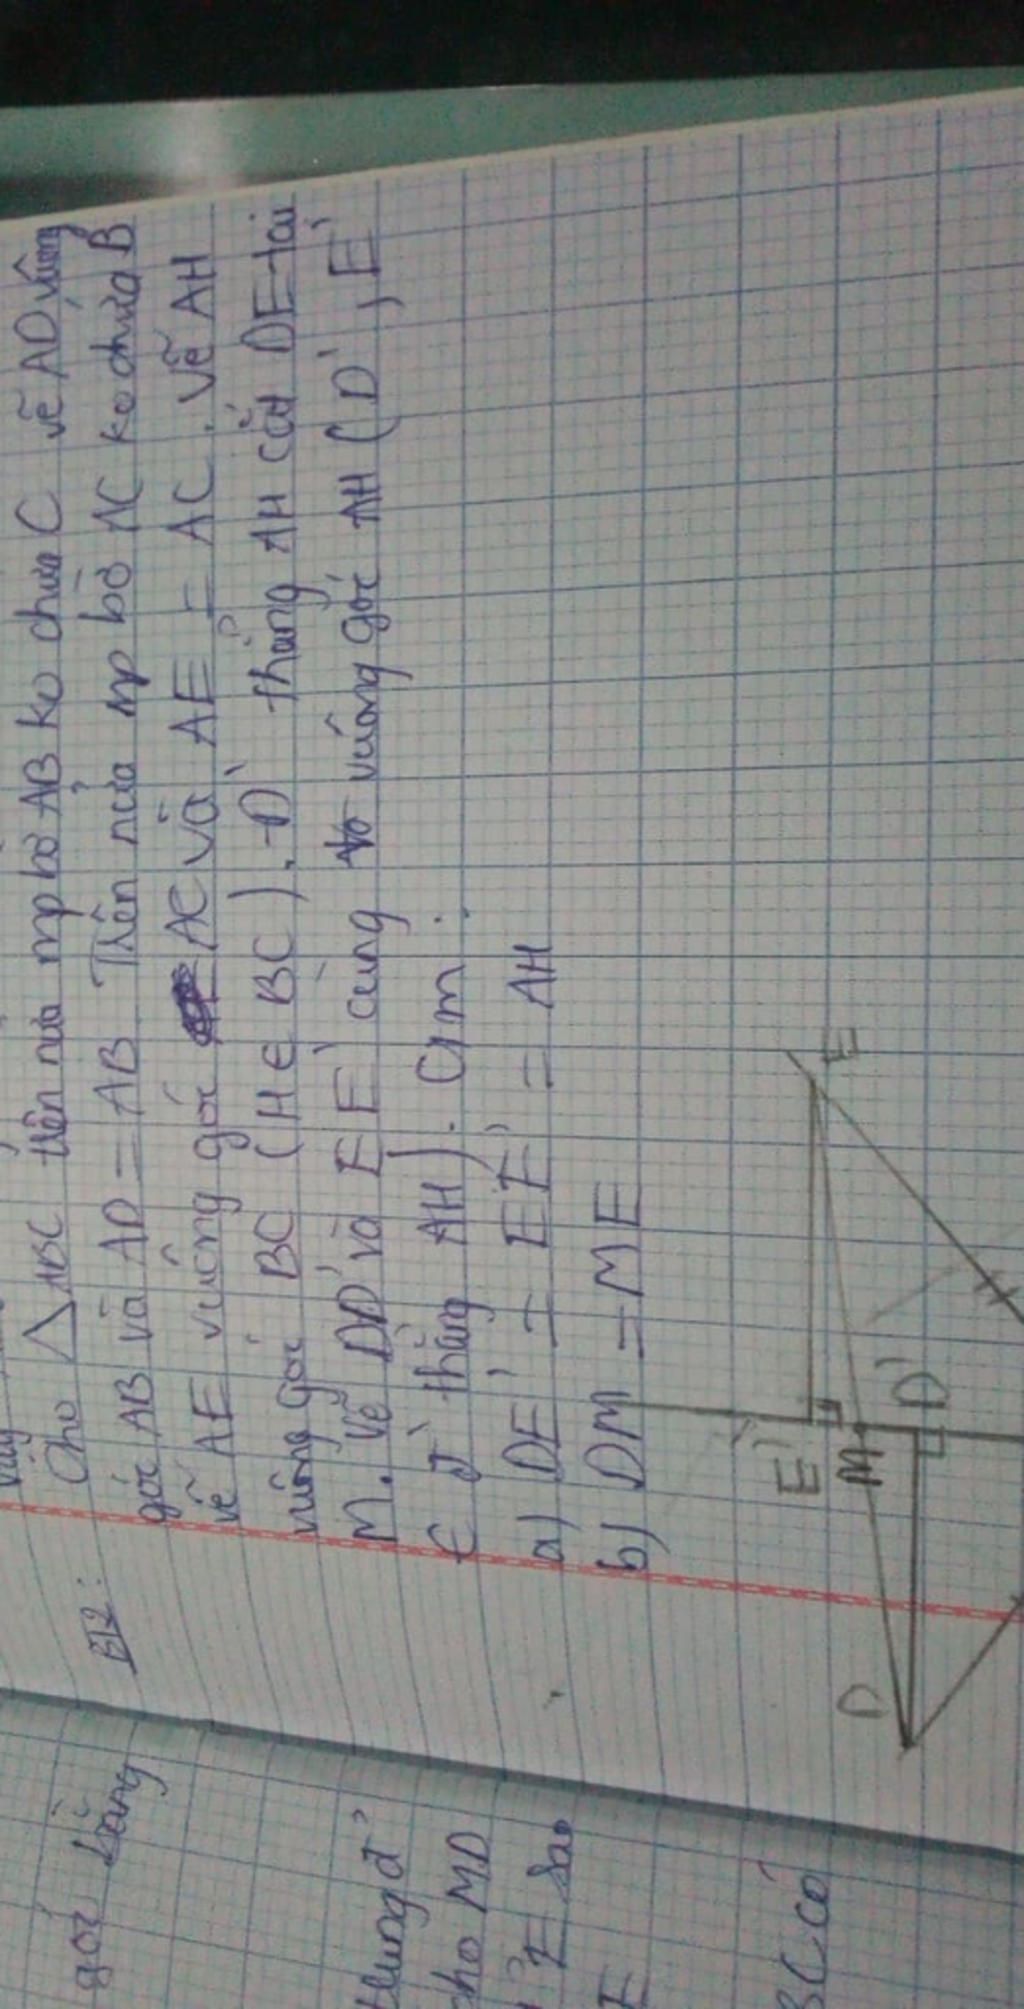 BT2:
Cho △ABC trên nửa mp bờ AB ko chứa C vẽ AD vuông
góc AB và AD = AB Trên nửa mp bờ AC ko chứa B
vẽ AE vuông góc AC và AE = AC. Vẽ AH
vuông góc BC (H ∈ BC). Đ' thẳng AH cắt DE tại
M. Vẽ DD' và EE' cùng vuông góc AH (D', E'
∈ đ' thẳng AH). Cm:
a) DE' = EE' = AH
b) DM = ME
E
E'
M
D'
D
góc bằng
trung đ'
cho MD
E sao
E
BC có